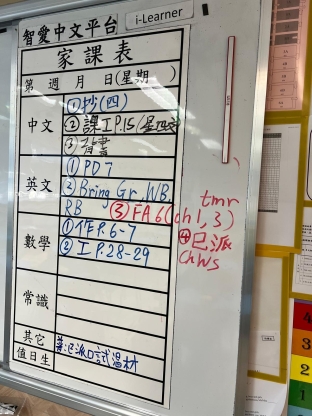 智愛中文平台
i-Learner
家課表
第 週 月 日(星期 )
中文
①抄(四)
②課工P.15(星四交)
③背書
英文
①PD7
②Bring Gr, WB,
RB
③FA6(ch1,3)
tmr
數學
①作P.6-7
②工P.28-29
④已派
Ch WS
常識
其它
已派口試温材
值日生
4
3
2
1